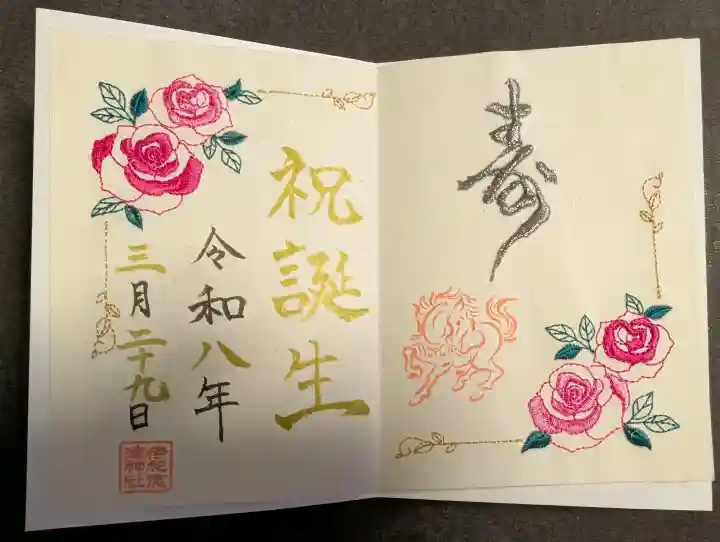 寿
祝誕生
令和八年
三月二十九日